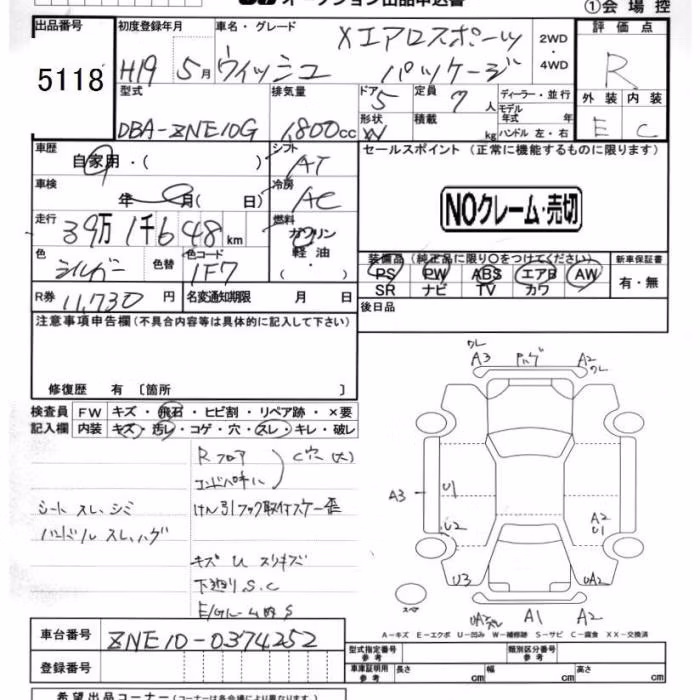 オークション出品申込書
①会場控
出品番号
5118
初度登録年月
H19 5月
車名・グレード
ウィッシュ
Xエアロスポーツ
パッケージ
2WD・4WD
評価点
R
外装 内装
E C
型式
DBA-ZNE10G
排気量
1,800cc
ドア 5
形状 W
定員 7人
積載 kg
ディーラー・並行
モデル年式 年
ハンドル 左・右
車歴
自家用・( )
シフト
AT
車検
年 月( 日)
冷房
AC
走行
39万1千648km
燃料
ガソリン
軽油
・( )
色
シルバー
色替
色コード
1F7
R券 11,730円
名変通知期限 月 日
セールスポイント(正常に機能するものに限ります)
NOクレーム・売切
装備品(純正品に限り○をつけてください)
PS PW ABS エアB AW
SR ナビ TV カワ
新車保証書
有・無
後日品
注意事項申告欄(不具合内容等は具体的に記入して下さい)
修復歴 有〔箇所 〕
検査員記入欄
FW キズ・飛石・ヒビ割・リペア跡・×要
内装 キズ・汚レ・コゲ・穴・スレ・キレ・破レ
Rフロア
C穴(大)
シート スレ、シミ
ハンドル スレ、ハゲ
けん引フック取付ステー歪
キズ U スリキズ
下廻り S.C
E/Gルーム内 S
ワレ
A3
ハゲ
A2
ワレ
A3
U1
U2
U3
A2
U1
UA2
A1
A2
スペア
A−キズ E−エクボ U−凹み W−補修跡 S−サビ C−腐食 XX−交換済
車台番号
ZNE10-0374252
登録番号
型式指定番号 参考
類別区分番号 参考
車庫証明用 参考
長さ cm
幅 cm
高さ cm
希望出品コーナー(コーナーは各会場により異なります)